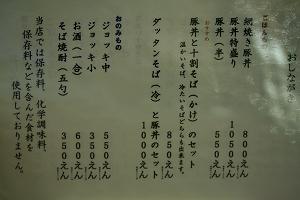 おしながき
ごはん
網焼き豚丼 800えん
豚丼特盛り 1050えん
豚丼(半) 550えん
おすすめ
豚丼と十割そば(かけ)のセット 850えん
温かいそば、冷たいそばどちらも出来ます。
ダッタンそば(冷)と豚丼のセット 1000えん
おのみもの
ジョッキ中 550えん
ジョッキ小 350えん
お酒(一合) 600えん
そば焼酎(五勺) 350えん
当店では保存料、化学調味料、
保存料などを含んだ食材を
使用しておりません。